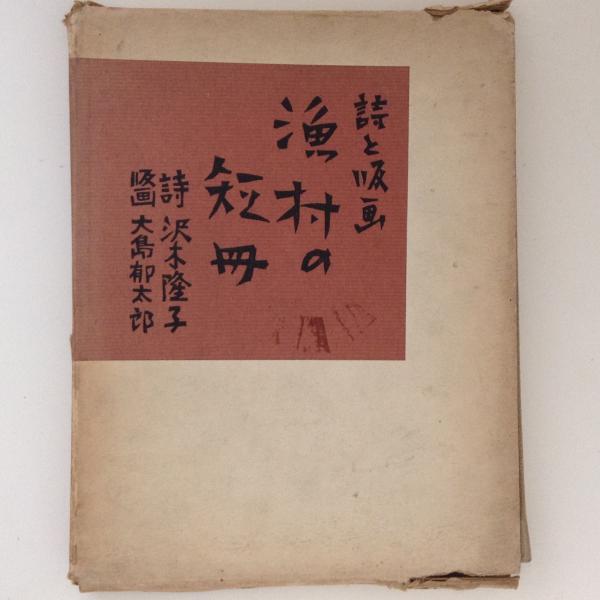 詩と版画
漁村の
短冊
詩 沢木隆子
版画 大島郁太郎